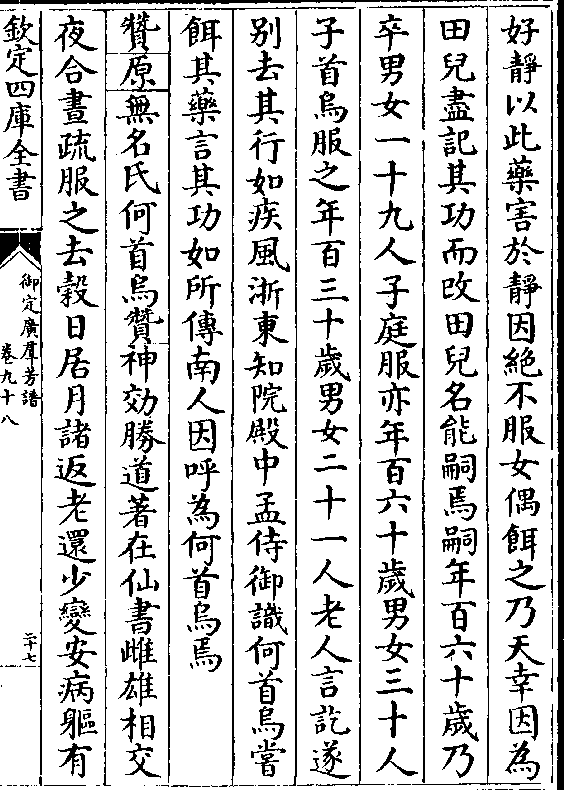 好靜以此藥害於靜因絶不服女偶餌之乃天幸因為
田兒盡記其功而改田兒名能嗣焉嗣年百六十歲乃
卒男女一十九人子庭服亦年百六十歲男女三十人
子首烏服之年百三十歲男女二十一人老人言訖遂
别去其行如疾風浙東知院殿中孟侍御識何首烏嘗
餌其藥言其功如所傳南人因呼為何首烏焉
贊原無名氏何首烏贊神効勝道著在仙書雌雄相交
夜合晝疏服之去榖日居月諸返老還少變安病軀有
欽定四庫全書
御定廣羣芳譜
卷九十八
二十七